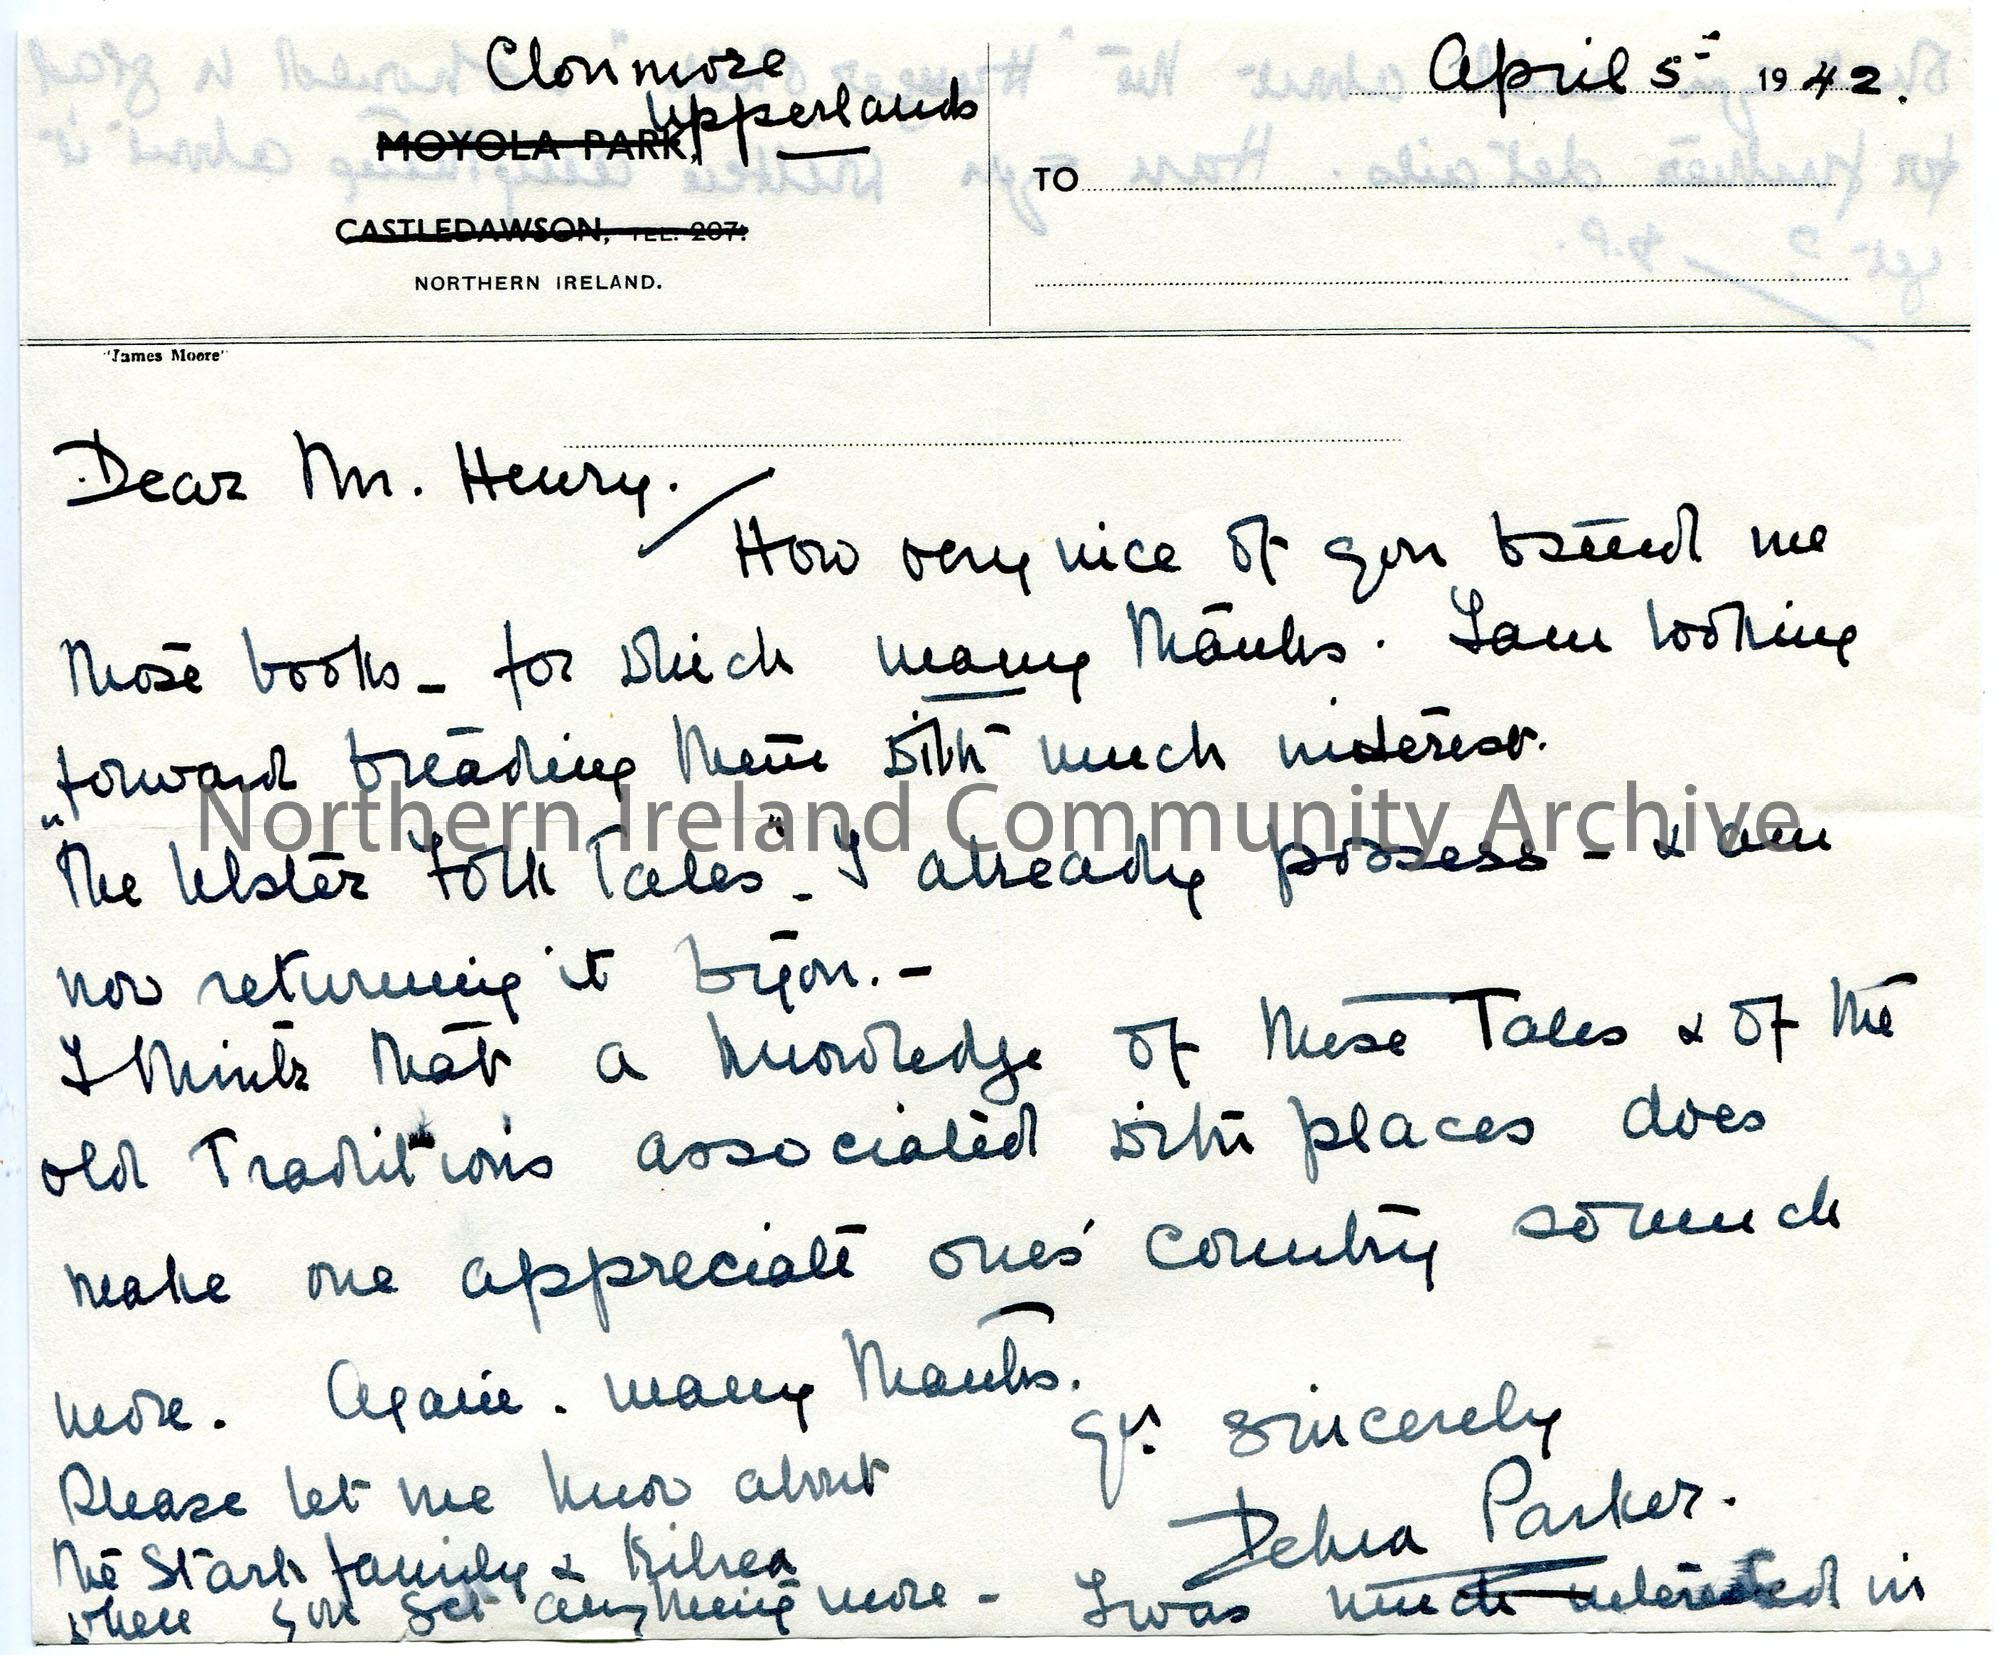 Clonmore
Upperlands
MOYOLA PARK,
CASTLEDAWSON, TEL. 207.
NORTHERN IRELAND.
April 5th 1942.
TO
"James Moore"
Dear Mr. Henry.
How very nice of you to send me
those books - for which many thanks. I am looking
forward to reading them with much interest.
"The Ulster Folk Tales" - I already possess - & am
now returning it to you. -
I think that a knowledge of these Tales & of the
old Traditions associated with places does
make one appreciate ones' country so much
more. Again. many thanks.
Yrs. sincerely
Dehra Parker.
Please let me know about
the Stark family & Kilrea
when you get anything more - I was much interested in
Northern Ireland Community Archive